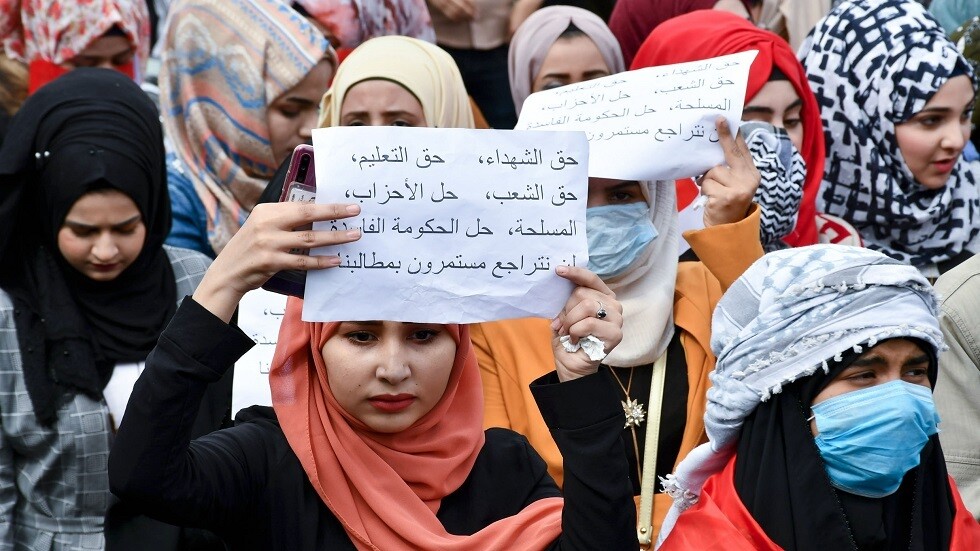 حق الشهداء، حق التعليم،
حق الشعب، حل الأحزاب،
المسلحة، حل الحكومة الفاسدة
لن نتراجع مستمرون بمطالبنا
حق الشهداء، حق التعليم،
حق الشعب، حل الأحزاب،
المسلحة، حل الحكومة الفاسدة
نتراجع مستمرون